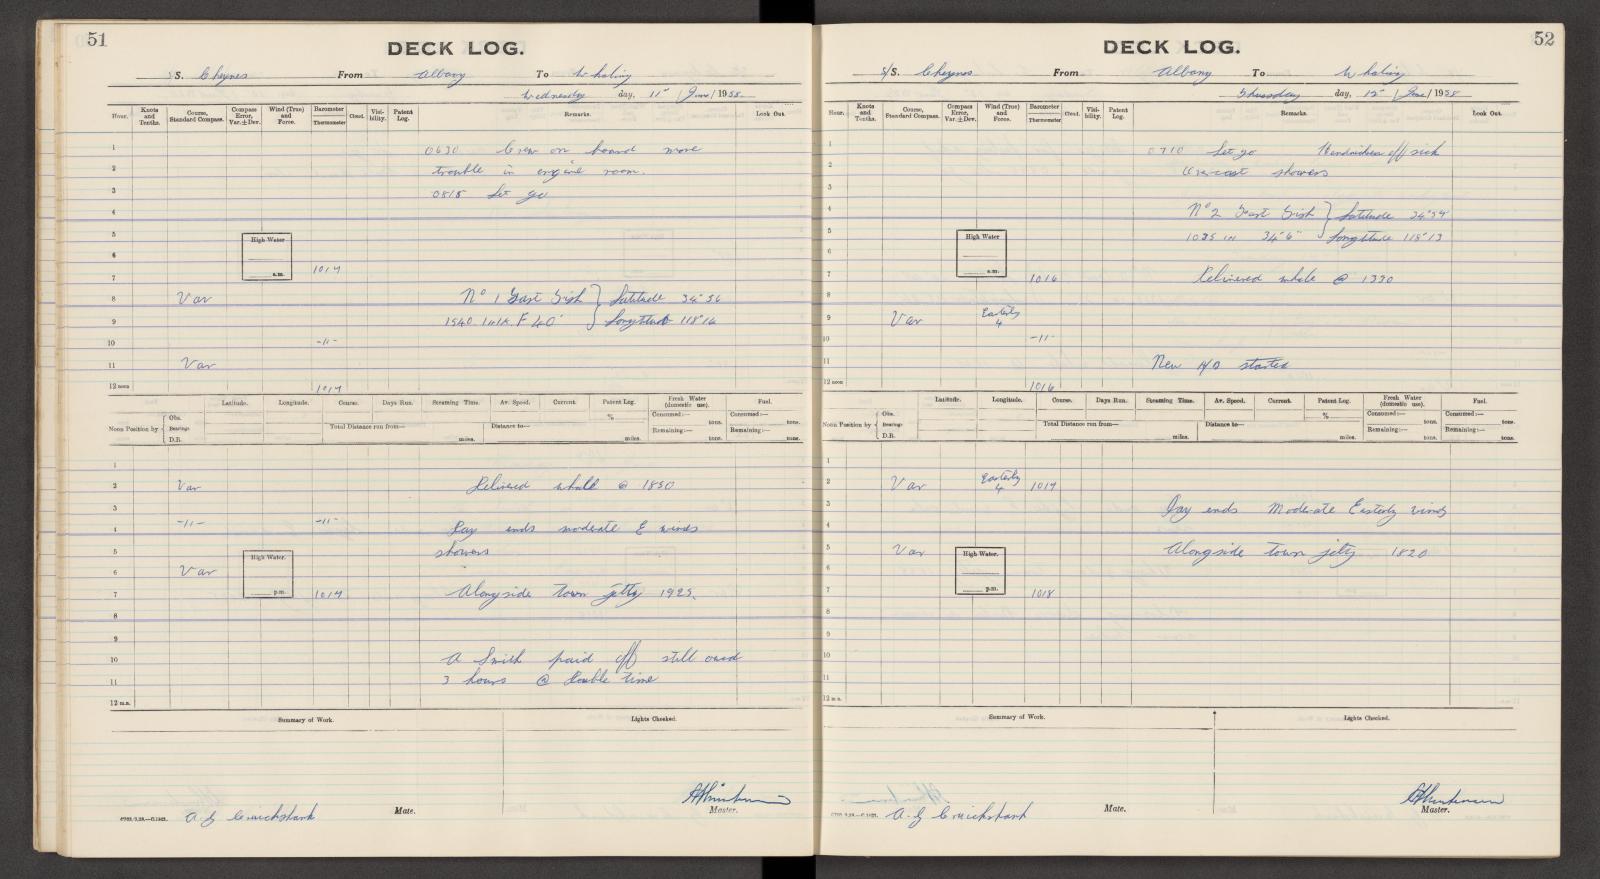 51
DECK LOG.
S. Cheynes From Albany To Whaling
Wednesday day, 11th June 1958
Hour. Knots and Tenths. Course, Standard Compass. Compass Error, Var.±Dev. Wind (True) and Force. Barometer Thermometer Cloud. Visibility. Patent Log. Remarks. Look Out.
1 0630 Crew on board more
2 trouble in engine room.
3 0815 Let go
4
5
High Water
a.m.
6
7 1017
8 Var No 1 Fast Fish } Latitude 34°56
9 1540 F 40' Longitude 118°16
10 -11-
11 Var
12 noon 1017
Latitude. Longitude. Course. Days Run. Steaming Time. Av. Speed. Current. Patent Log. Fresh Water (domestic use). Fuel.
Noon Position by { Obs. Bearings D.R.
% Consumed:— tons. Consumed:— tons.
Total Distance run from— miles. Distance to— miles. Remaining:— tons. Remaining:— tons.
1
2 Var Delivered whale @ 1850
3
4 -11- -11- Day ends moderate E winds
5 showers
High Water.
p.m.
6 Var
7 1017 Alongside town jetty 1925.
8
9
10 A Smith paid off still owed
11 3 hours @ double time
12 m.n.
Summary of Work. Lights Checked.
A. G Cruickshank Mate.
Master.
52
DECK LOG.
S/S. Cheynes From Albany To Whaling
Thursday day, 12th June 1958
Hour. Knots and Tenths. Course, Standard Compass. Compass Error, Var.±Dev. Wind (True) and Force. Barometer Thermometer Cloud. Visibility. Patent Log. Remarks. Look Out.
1 0710 Let go Hendricksen off sick
2 Overcast showers
3
4 No 2 Fast Fish } Latitude 34°59
5 1035 34'6" Longitude 118°13
High Water
a.m.
6
7 1016 Delivered whale @ 1330
8
9 Var Easterly 4
10 -11-
11 New A/O started
12 noon 1016
Latitude. Longitude. Course. Days Run. Steaming Time. Av. Speed. Current. Patent Log. Fresh Water (domestic use). Fuel.
Noon Position by { Obs. Bearings D.R.
% Consumed:— tons. Consumed:— tons.
Total Distance run from— miles. Distance to— miles. Remaining:— tons. Remaining:— tons.
1
2 Var Easterly 4 1017
3 Day ends Moderate Easterly winds
4
5 Var Alongside town jetty 1820
High Water.
p.m.
6
7 1018
8
9
10
11
12 m.n.
Summary of Work. Lights Checked.
A. G Cruickshank Mate.
Master.